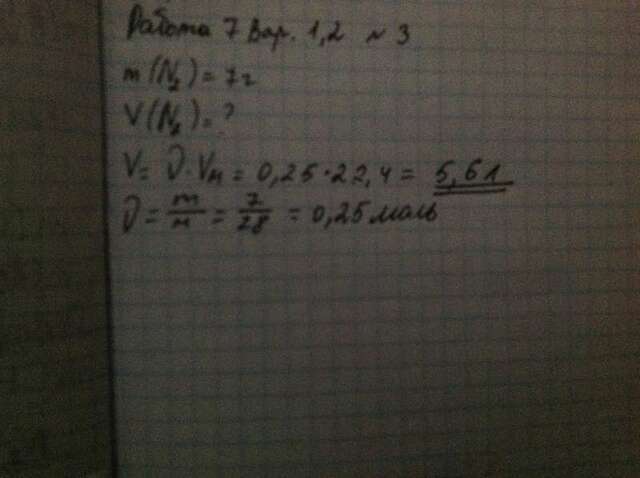 Работа 7 Вар. 1,2 № 3
m(N₂) = 7г
V(N₂) = ?
V = ν·Vм = 0,25·22,4 = 5,6л
ν = m/м = 7/28 = 0,25 моль